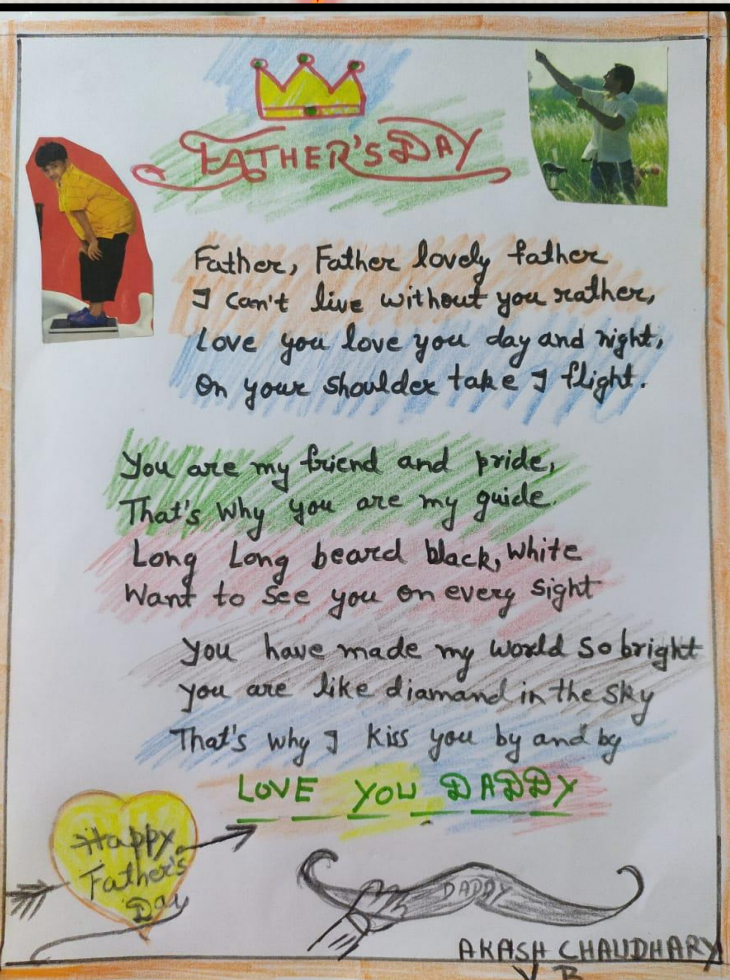 FATHER'S DAY
Father, Father lovely father
I can't live without you rather,
Love you love you day and night,
On your shoulder take I flight.
You are my friend and pride,
That's why you are my guide.
Long Long beard black, white
Want to see you on every sight
You have made my world so bright
you are like diamand in the sky
That's why I kiss you by and by
LOVE YOU DADDY
Happy
Father's
Day
DADDY
AKASH CHAUDHARY
V B